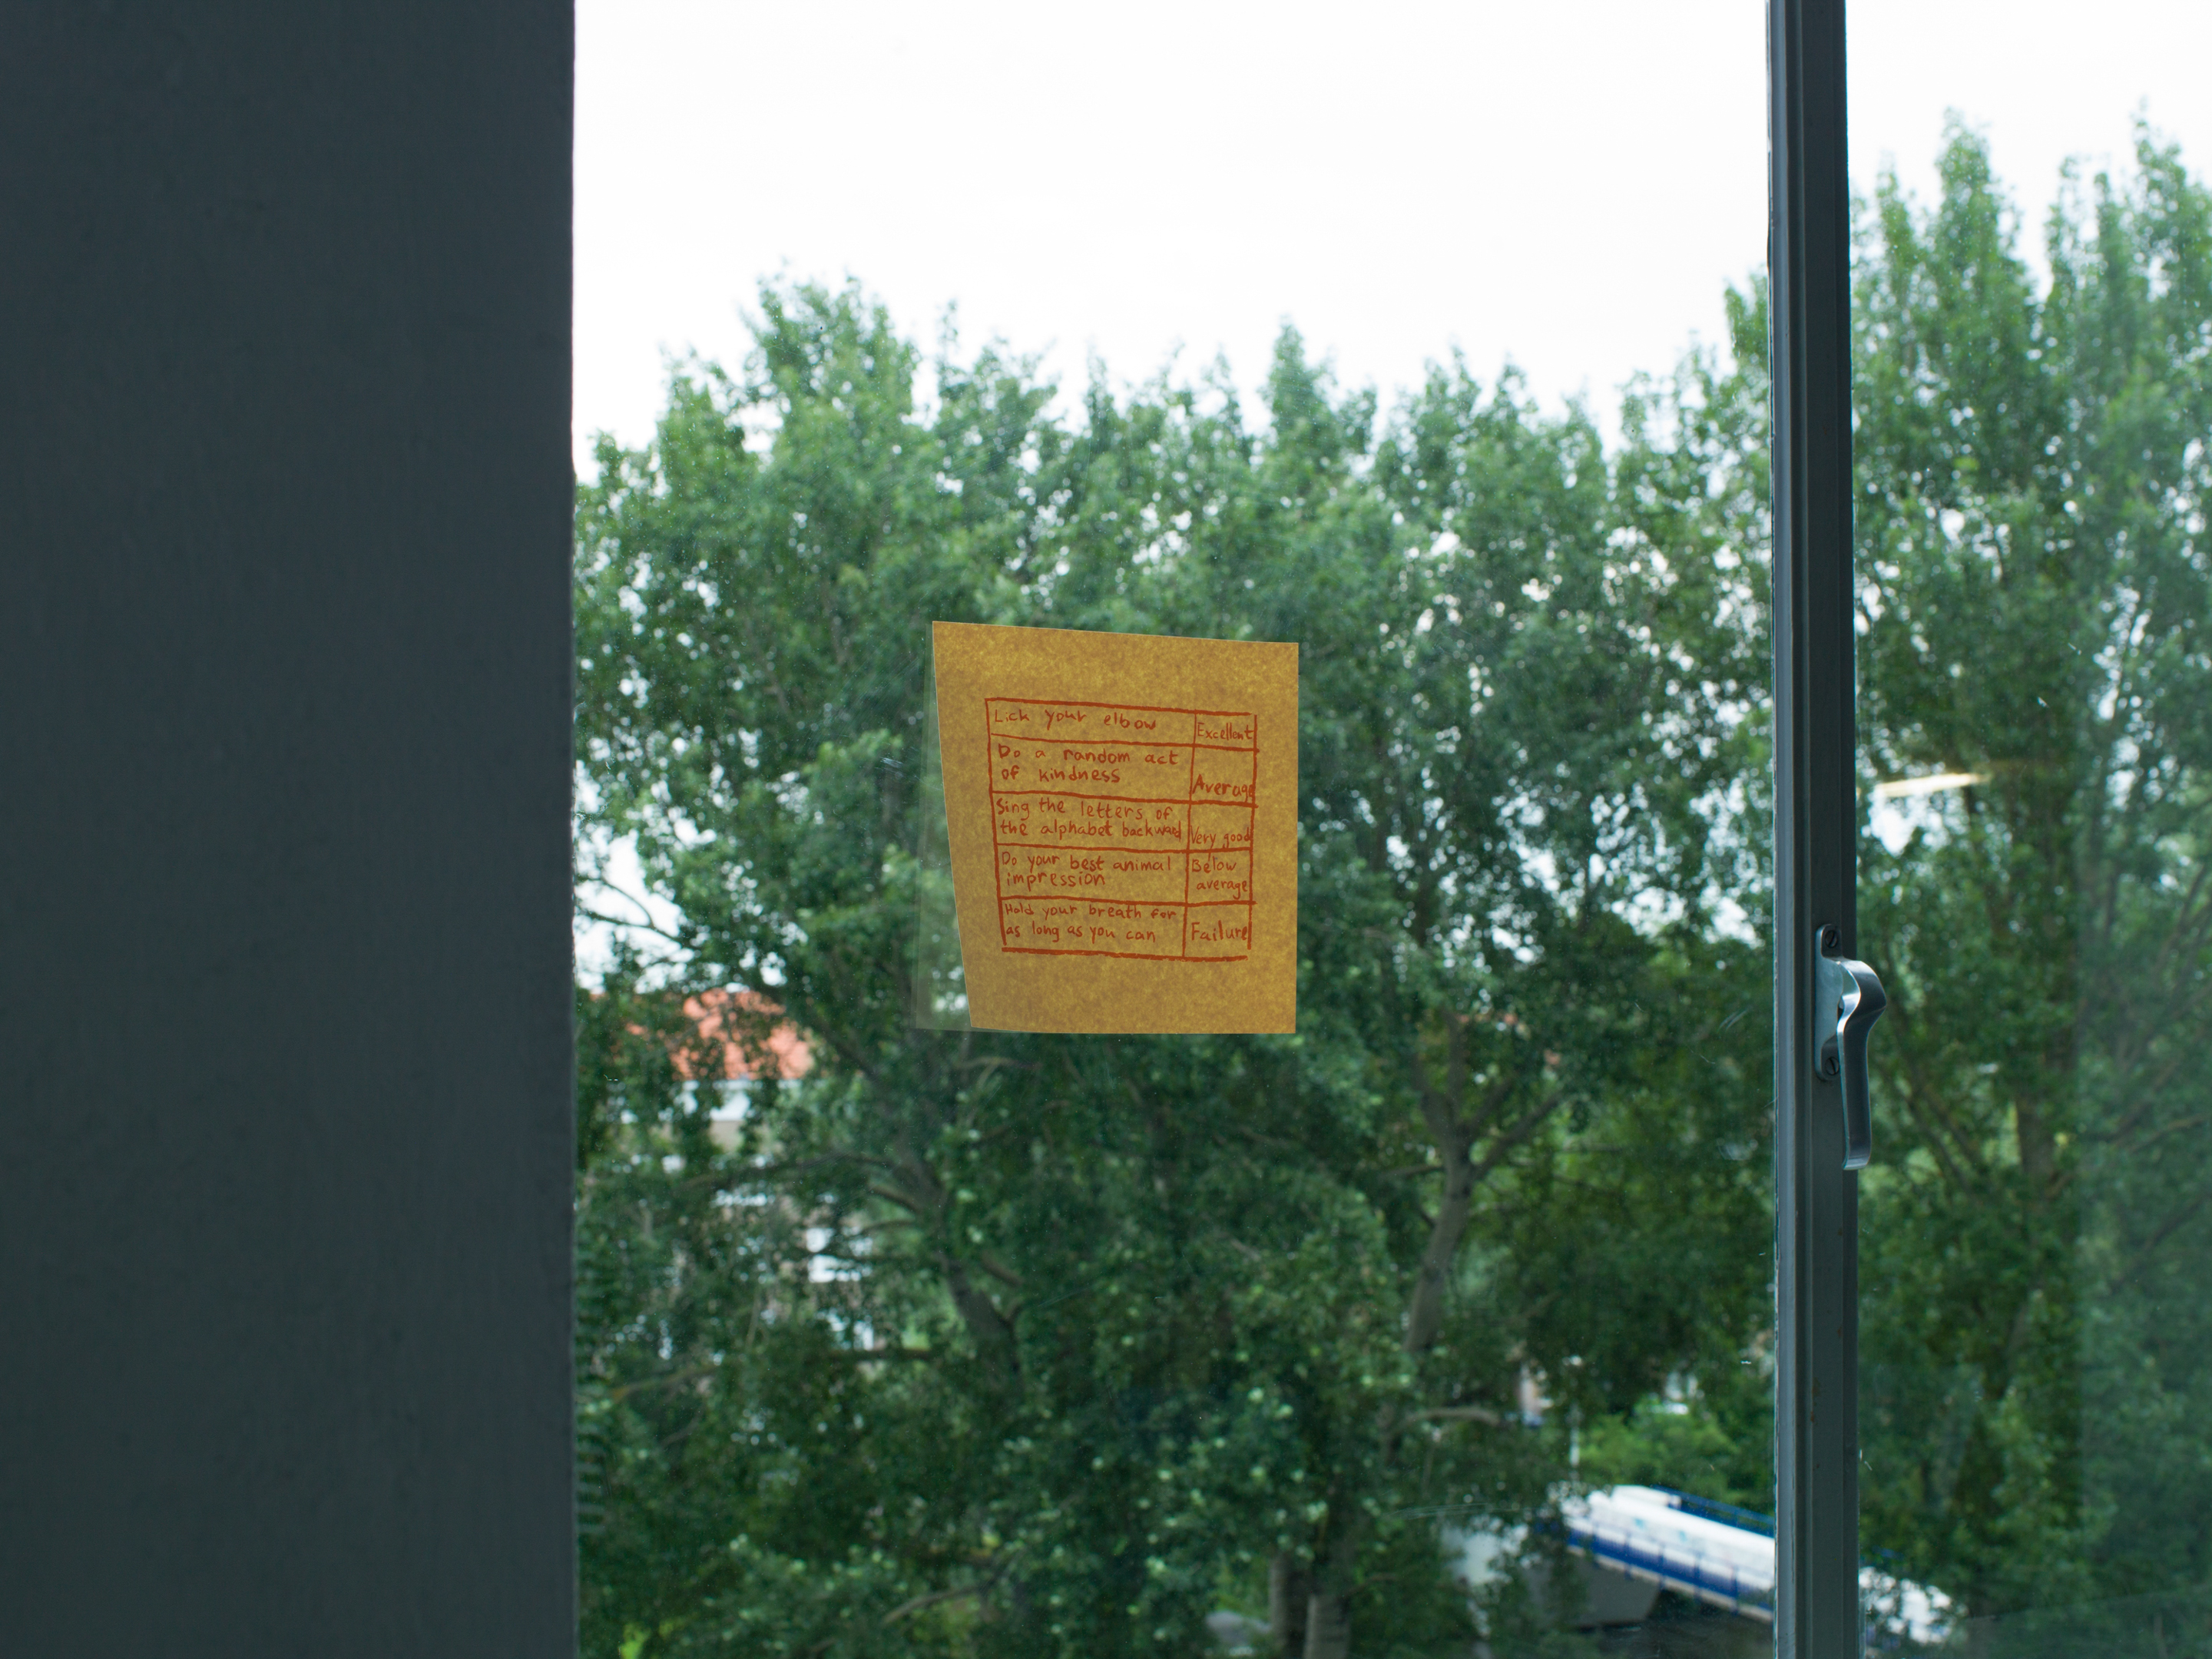 Lick your elbow
Excellent
Do a random act
of kindness
Average
Sing the letters of
the alphabet backward
Very good
Do your best animal
impression
Below
average
Hold your breath for
as long as you can
Failure